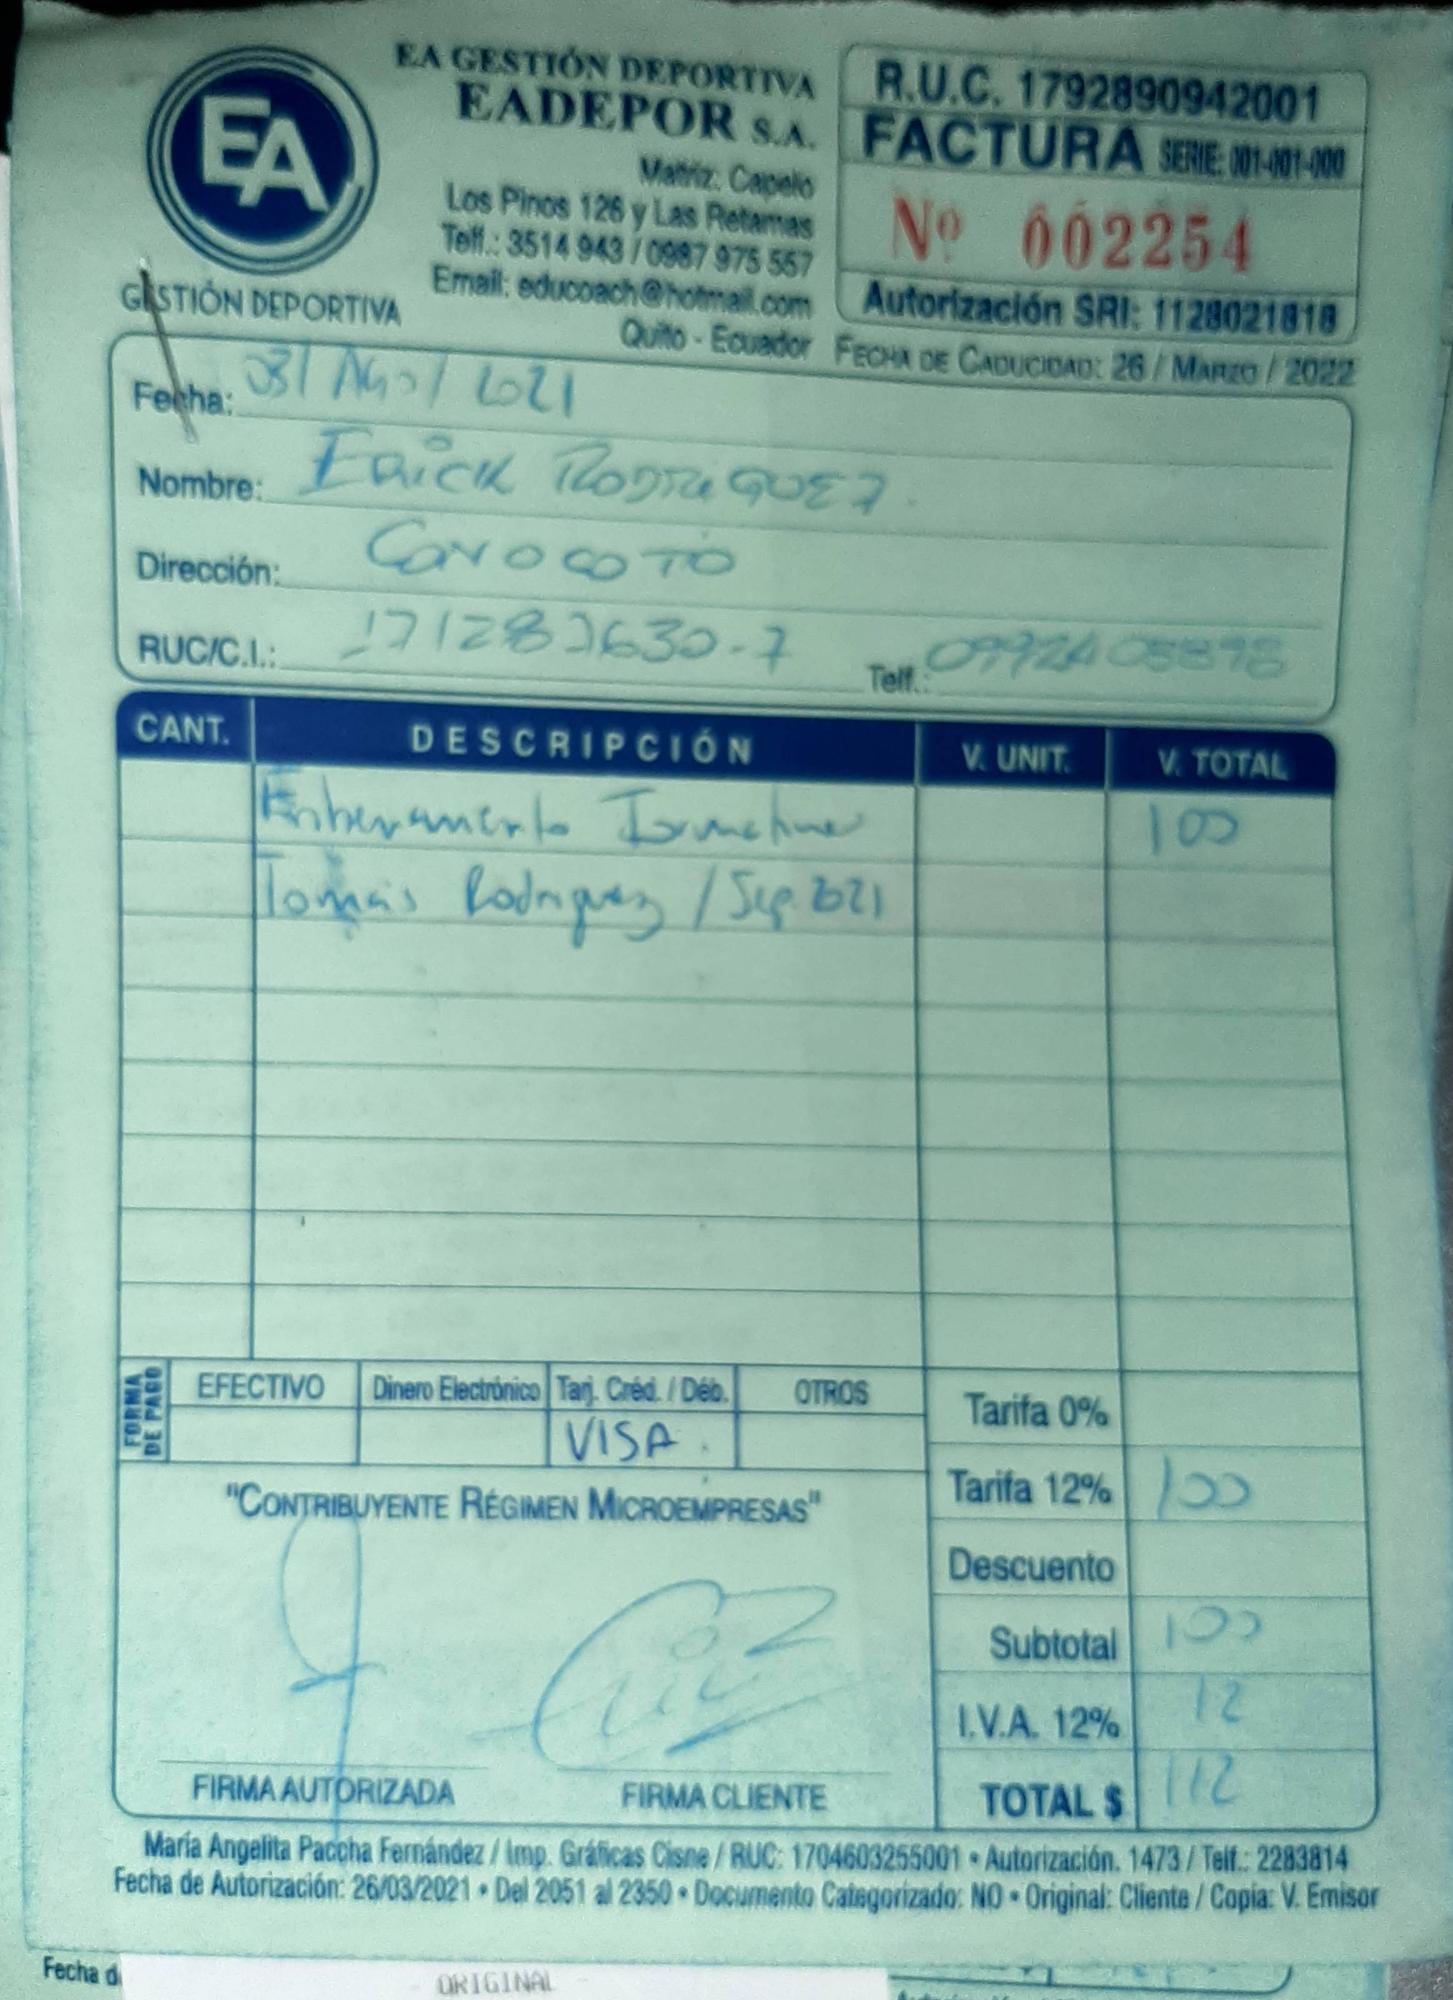 EA
GESTIÓN DEPORTIVA
EA GESTIÓN DEPORTIVA
EADEPOR S.A.
Matriz: Capelo
Los Pinos 126 y Las Retamas
Telf.: 3514 943 / 0987 975 557
Email: educoach@hotmail.com
Quito - Ecuador
R.U.C. 1792890942001
FACTURA SERIE: 001-001-000
Nº 002254
Autorización SRI: 1128021818
FECHA DE CADUCIDAD: 26 / MARZO / 2022
Fecha: 03/ Ago/ 2021
Nombre: Erick Rodriguez.
Dirección: Conocoto
RUC/C.I.: 171282630-7 Telf.:
CANT. DESCRIPCIÓN V. UNIT. V. TOTAL
Entrenamiento 100
Tomás Rodriguez / Sep. 2021
FORMA DE PAGO
EFECTIVO Dinero Electrónico Tarj. Créd. / Déb. OTROS
VISA.
Tarifa 0%
Tarifa 12% 100
Descuento
Subtotal 100
I.V.A. 12% 12
TOTAL $ 112
"CONTRIBUYENTE RÉGIMEN MICROEMPRESAS"
FIRMA AUTORIZADA FIRMA CLIENTE
María Angelita Paccha Fernández / Imp. Gráficas Cisne / RUC: 1704603255001 • Autorización. 1473 / Telf.: 2283814
Fecha de Autorización: 26/03/2021 • Del 2051 al 2350 • Documento Categorizado: NO • Original: Cliente / Copia: V. Emisor
Fecha d
ORIGINAL